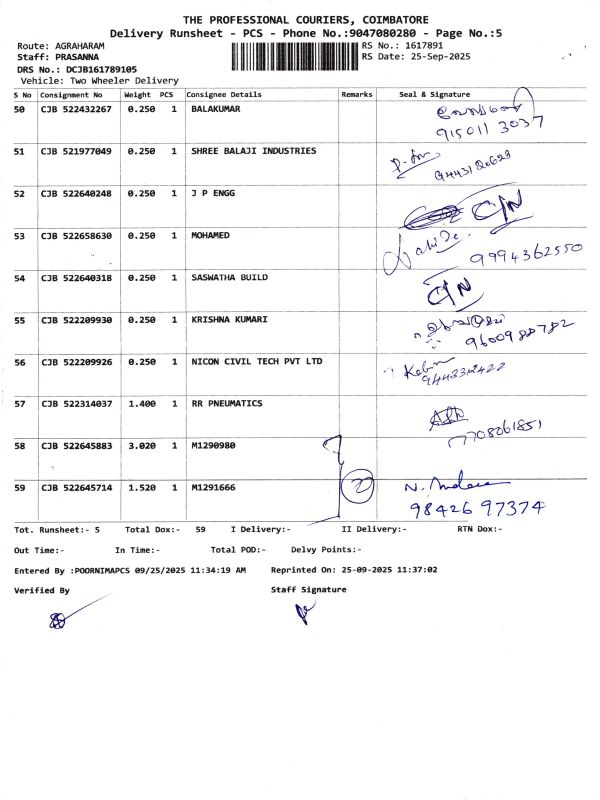 THE PROFESSIONAL COURIERS, COIMBATORE
Delivery Runsheet - PCS - Phone No.:9047080280 - Page No.:5
Route: AGRAHARAM RS No.: 1617891
Staff: PRASANNA RS Date: 25-Sep-2025
DRS No.: DCJB161789105
Vehicle: Two Wheeler Delivery
S No Consignment No Weight PCS Consignee Details Remarks Seal & Signature
50 CJB 522432267 0.250 1 BALAKUMAR
915011 3037
51 CJB 521977049 0.250 1 SHREE BALAJI INDUSTRIES
9443120623
52 CJB 522640248 0.250 1 J P ENGG C/N
53 CJB 522658630 0.250 1 MOHAMED
9994362550
54 CJB 522640318 0.250 1 SASWATHA BUILD C/N
55 CJB 522209930 0.250 1 KRISHNA KUMARI
9600988782
56 CJB 522209926 0.250 1 NICON CIVIL TECH PVT LTD
57 CJB 522314037 1.400 1 RR PNEUMATICS
7708061851
58 CJB 522645883 3.020 1 M1290980
59 CJB 522645714 1.520 1 M1291666 2
98426 97374
Tot. Runsheet:- 5 Total Dox:- 59 I Delivery:- II Delivery:- RTN Dox:-
Out Time:- In Time:- Total POD:- Delvy Points:-
Entered By :POORNIMAPCS 09/25/2025 11:34:19 AM Reprinted On: 25-09-2025 11:37:02
Verified By Staff Signature